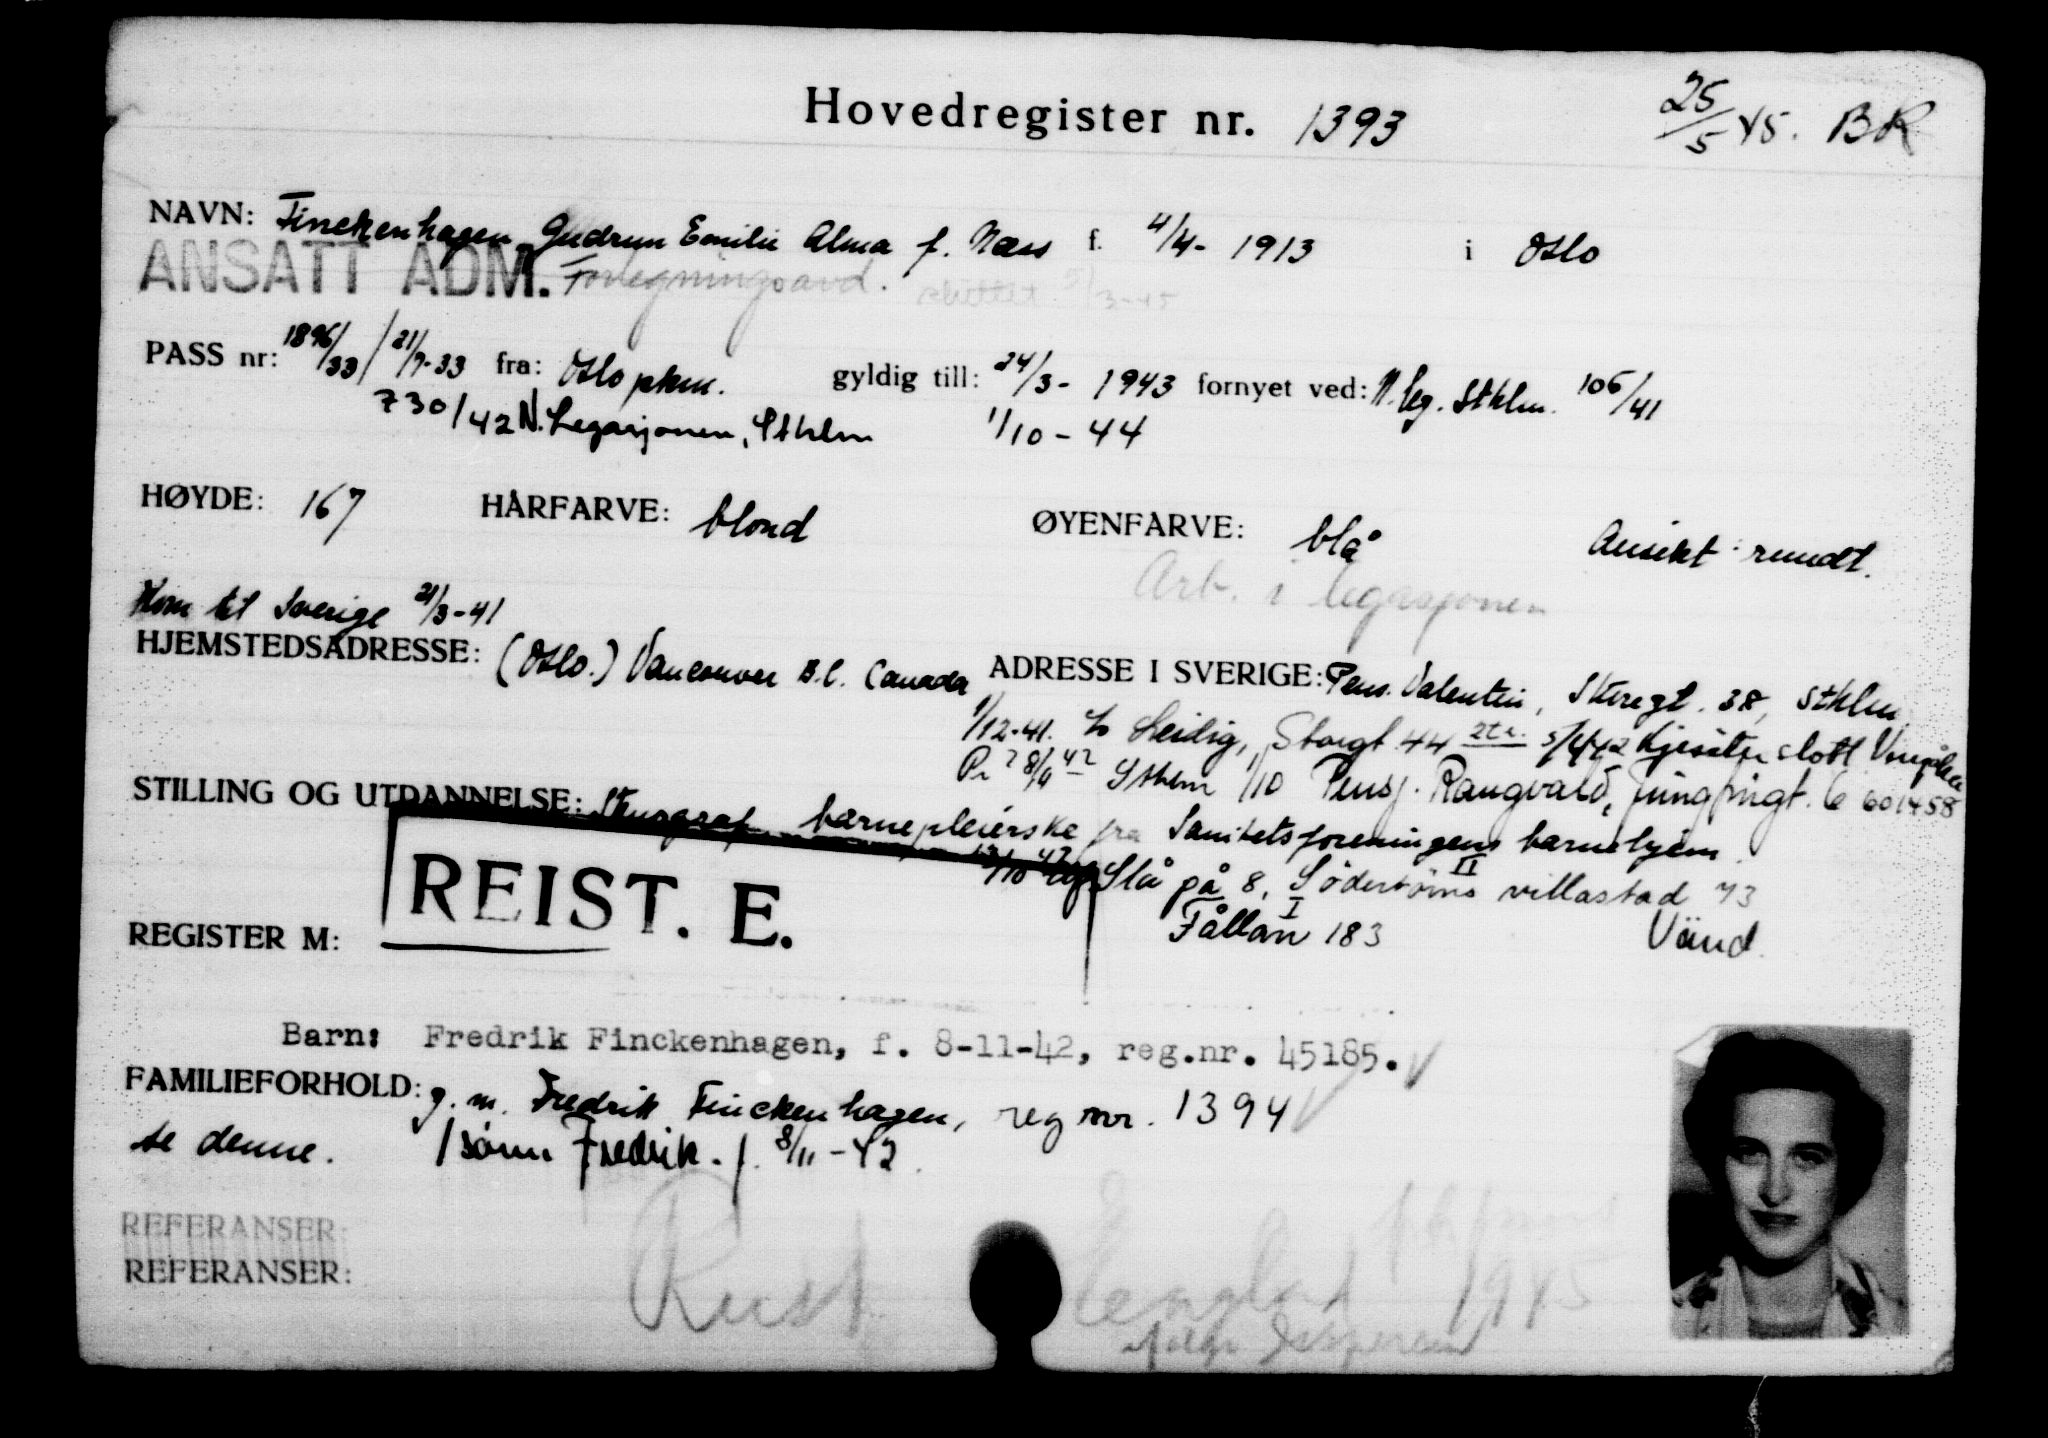 Hovedregister nr. 1393 25/5 45. BR
NAVN: Finckenhagen, Gudrun Emilie Alma f. Næss f. 4/4- 1913 i Oslo
ANSATT ADM. Forlegningsavd. sluttet 5/3-45
PASS nr: 1896/33 / 21/9-33 fra: Oslo pkm. gyldig till: 24/3- 1943 fornyet ved: N. leg. Sthlm. 106/41
730/42 N. Legasjonen, Sthlm 1/10 - 44
HØYDE: 167 HÅRFARVE: blond ØYENFARVE: blå Ansikt: rundt.
Arb. i legasjonen
Kom til Sverige 21/3-41
HJEMSTEDSADRESSE: (Oslo.) Vancouver B.C. Canada ADRESSE I SVERIGE: Pens. Valentin, Sturegt. 38, Sthlm.
1/12-41. Leidig, Storgt. 44 2 tr. Kjesäter slott Vingåker
28/9 42 Sthlm 1/10 Pensj. Rangvald, Jungfrugt. 6 601458
STILLING OG UTDANNELSE: Stenograf, barnepleierske fra Sanitetsforeningens barnehjem.
Slå på 8, Södertörns villastad II 73
REIST. E.
REGISTER M: Fållan I 183 Vänd.
Barn: Fredrik Finckenhagen, f. 8-11-42, reg.nr. 45185.
FAMILIEFORHOLD: g. m. Fredrik Finckenhagen, reg nr. 1394
se denne. 1 sønn Fredrik. f. 8/11-42.
REFERANSER:
REFERANSER:
Reist England 1945